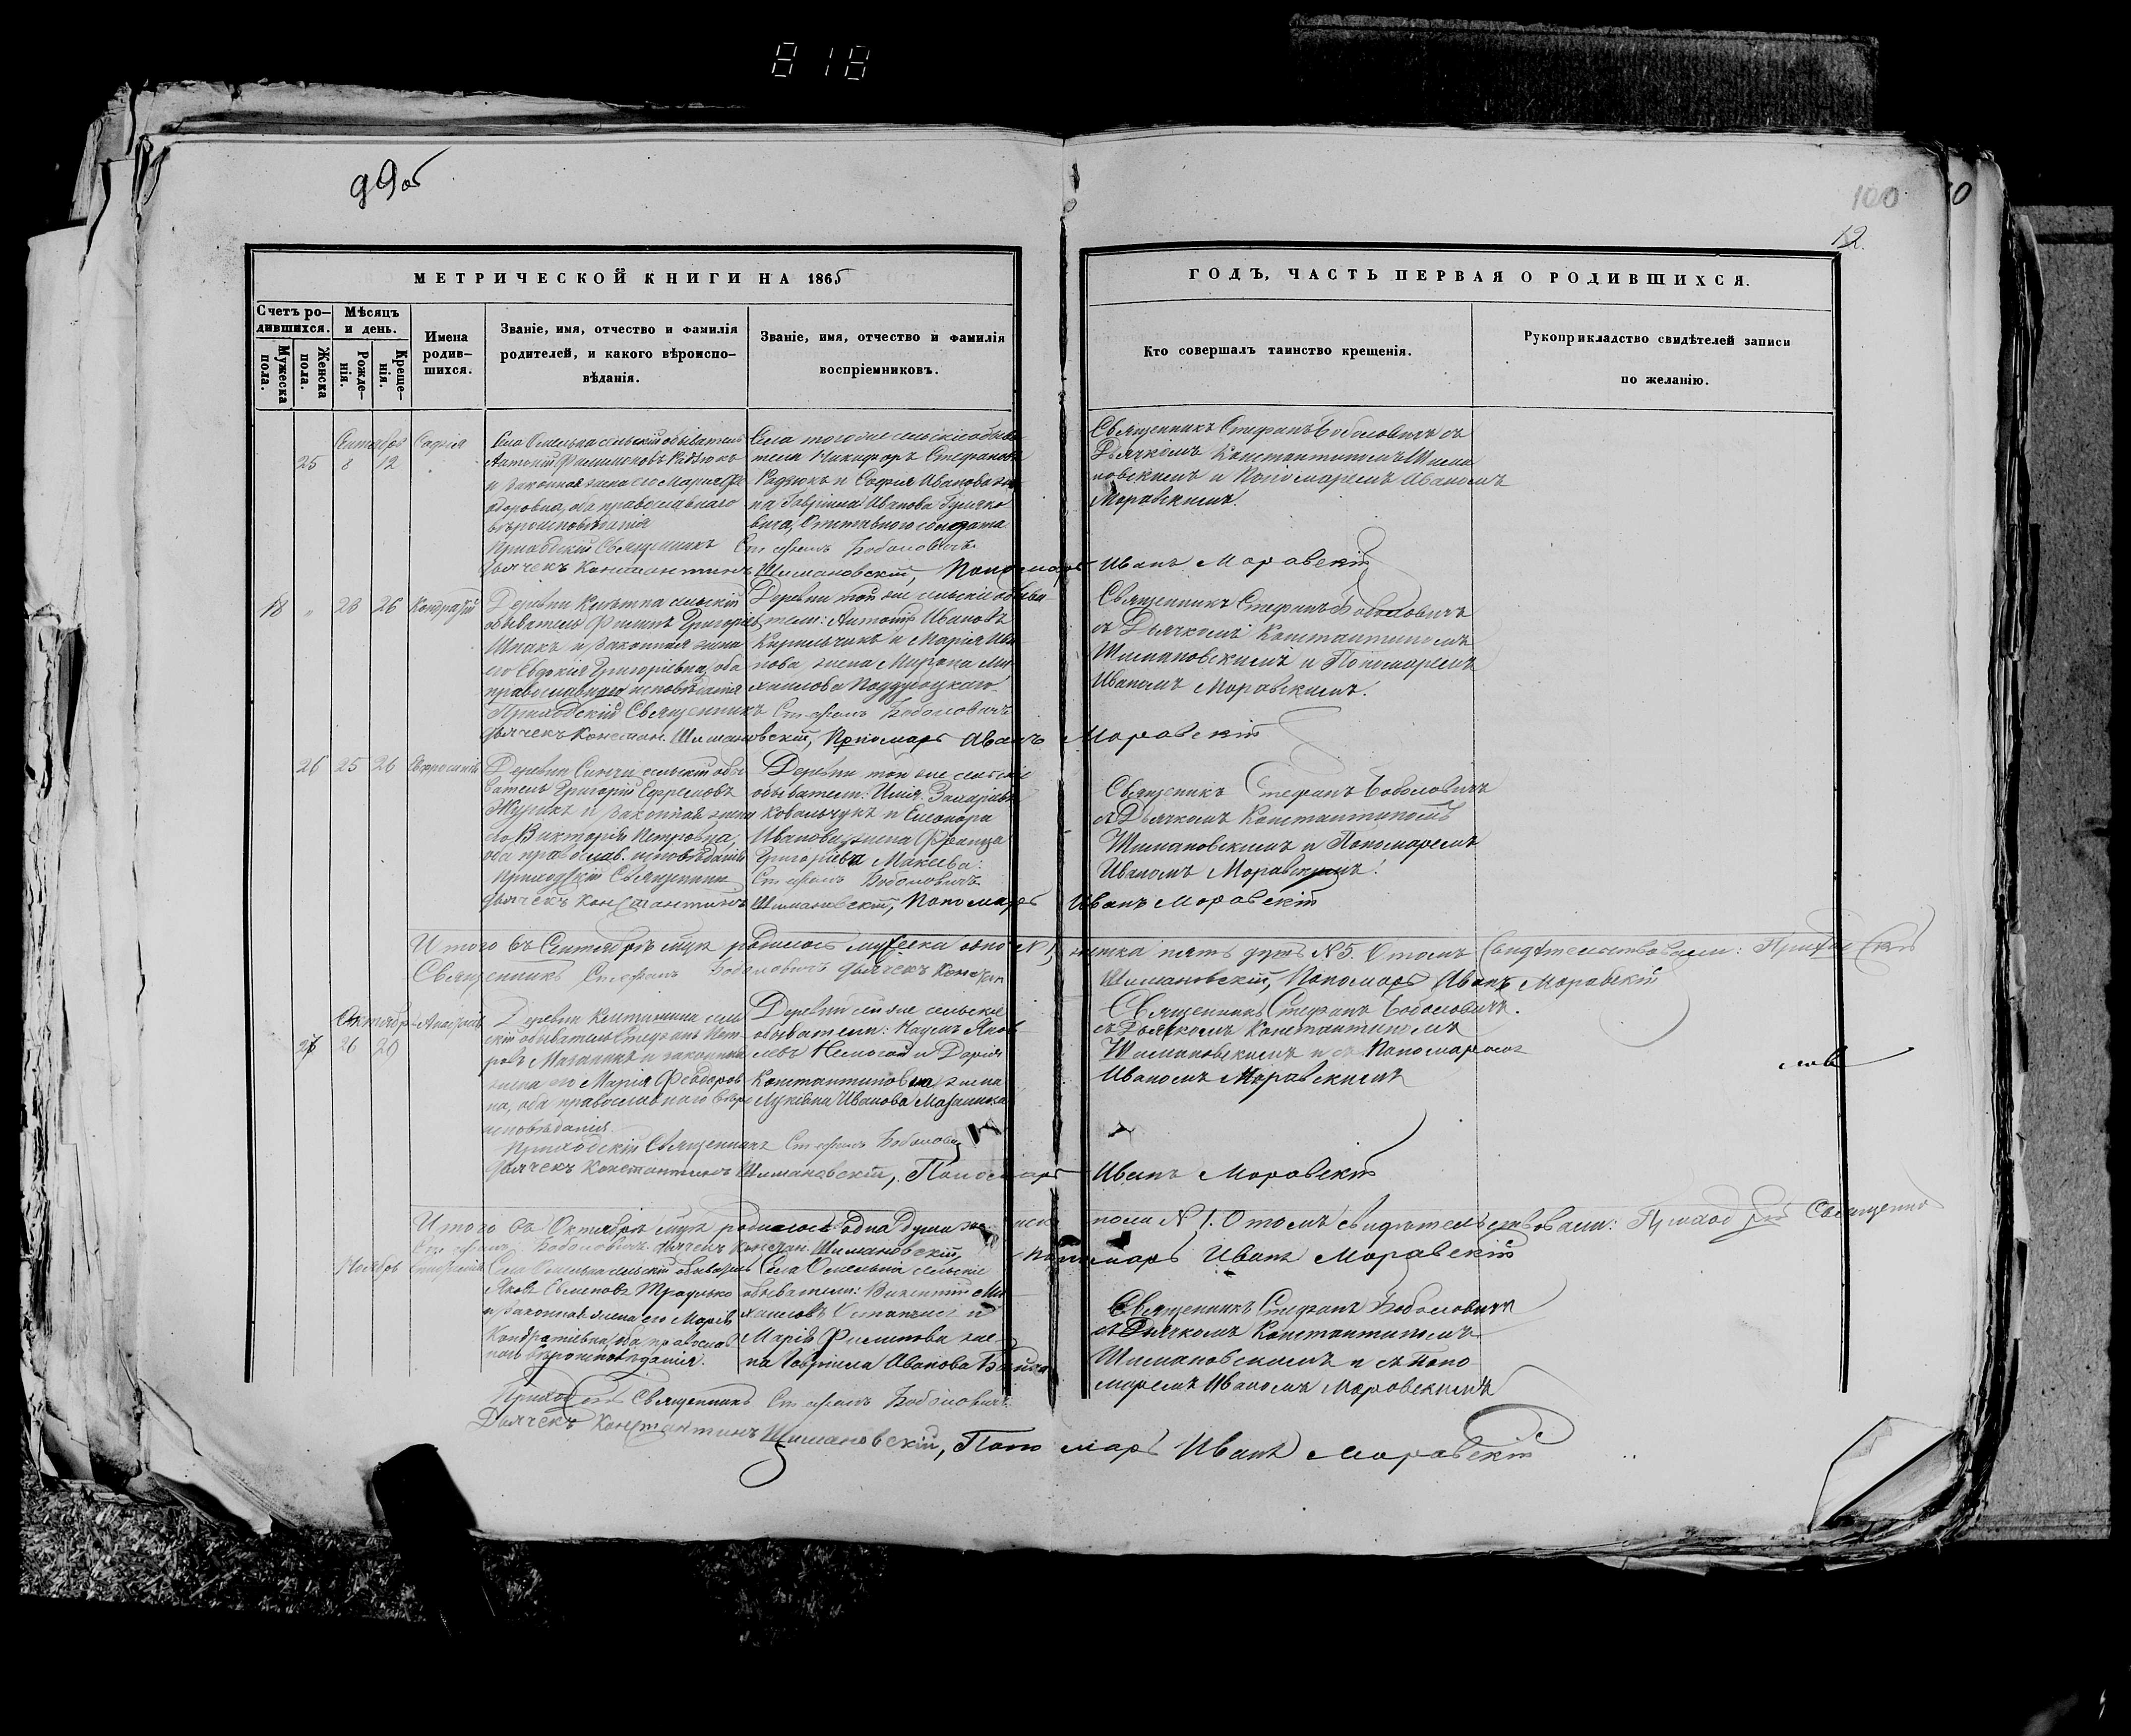 818
99об
100
12.
МЕТРИЧЕСКОЙ КНИГИ НА 1865
Счетъ ро-
дившихся.
Мужеска
пола.
Женска
пола.
Мѣсяцъ
и день.
Рожде-
нія.
Креще-
нія.
Имена
родив-
шихся.
Званіе, имя, отчество и фамилія
родителей, и какого вѣроиспо-
вѣданія.
Званіе, имя, отчество и фамилія
воспріемниковъ.
ГОДЪ, ЧАСТЬ ПЕРВАЯ О РОДИВШИХСЯ.
Кто совершалъ таинство крещенія.
Рукоприкладство свидѣтелей записи
по желанію.
Сентябрь
25 8 12
София
Села сельскій обыватель
Антоній Филимоновъ
и законная жена его Марія Ѳе
одоровна, оба православнаго
вѣроисповѣданія
Села тогоже сельскіе обыва
тели Никифоръ Стефановъ
и София Иванова же
на Гавріила Иванова
Отставного солдата
Священникъ Стефанъ Боболовичъ съ
Дьячкомъ Константиномъ Шима
новскимъ и Пономаремъ Иваномъ
Моравскимъ.
Приходскій Священникъ Стефанъ Боболовичъ
Дьячекъ Константинъ Шимановскій, Пономарь Иванъ Моравскій
18 " 23 26 Кондратій
Деревни сельскій
обыватель Филипъ Григорьевъ
Шпакъ и законная жена
его Евдокія Григоріевна, оба
православнаго исповѣданія
Деревни той же сельскіе обыва
тели: Антоній Ивановъ
Кирильчукъ и Марія Ива
нова жена Мирона Ми
хаилова
Священникъ Стефанъ Боболовичъ
съ Дьячкомъ Константиномъ
Шимановскимъ и Пономаремъ
Иваномъ Моравскимъ.
Приходскій Священникъ Стефанъ Боболовичъ
Дьячекъ Констан. Шимановскій, Пономарь Иванъ Моравскій
26 25 26 Евфросинія
Деревни сельскій обы
ватель Григорій Ефремовъ
и законная жена
его Викторія Петровна,
оба православ. исповѣданія
Деревни той же сельскіе
обыватели: Илія Захаріевъ
Ковальчукъ и Елеонора
Иванова жена Франца
Григоріева Макеева:
Священникъ Стефанъ Боболовичъ
съ Дьячкомъ Константиномъ
Шимановскимъ и Пономаремъ
Иваномъ Моравскимъ!
Приходскій Священникъ Стефанъ Боболовичъ
Дьячекъ Константинъ Шимановскій, Пономарь Иванъ Моравскій
Итого въ Сентябрѣ мцѣ родилось мужеска одно №1, женска пять душъ №5. О томъ свидѣтельствовали: Приходскій
Священникъ Стефанъ Боболовичъ дьячекъ Констан Шимановскій, Пономарь Иванъ Моравскій
Октябрь
26 20
Деревни сель
скій обыватель Стефанъ Пет
ровъ и законная
жена его Марія Ѳеодоров
на, оба православнаго вѣро
исповѣданія.
Деревни сельскіе
обыватели: Наумъ Яков
левъ и Дарія
Константиновна жена
Иванова
Священникъ Стефанъ Боболовичъ.
съ Дьячкомъ Константиномъ
Шимановскимъ и съ Пономаремъ
Иваномъ Моравскимъ
Приходскій Священникъ Стефанъ Боболовичъ
Дьячекъ Константинъ Шимановскій, Пономарь Иванъ Моравскій
Итого въ Октябрѣ мцѣ родилось одна душа женска пола №1. О томъ свидѣтельствовали: Приходскій Священникъ
Стефанъ Боболовичъ дьячекъ Констан. Шимановскій, Пономарь Иванъ Моравскій
Ноябрь
Села сельскій обыватель
Яковъ Семеновъ
и законная жена его Марія
Кондратіевна, оба православ
наго вѣроисповѣданія.
Села сельскіе
обыватели: Викентій Ми
хаиловъ и
Марія Филипова же
на Гавріила Иванова
Священникъ Стефанъ Боболовичъ
съ Дьячкомъ Константиномъ
Шимановскимъ и съ Поно
маремъ Иваномъ Моравскимъ
Приходскій Священникъ Стефанъ Боболовичъ
Дьячекъ Константинъ Шимановскій, Пономарь Иванъ Моравскій